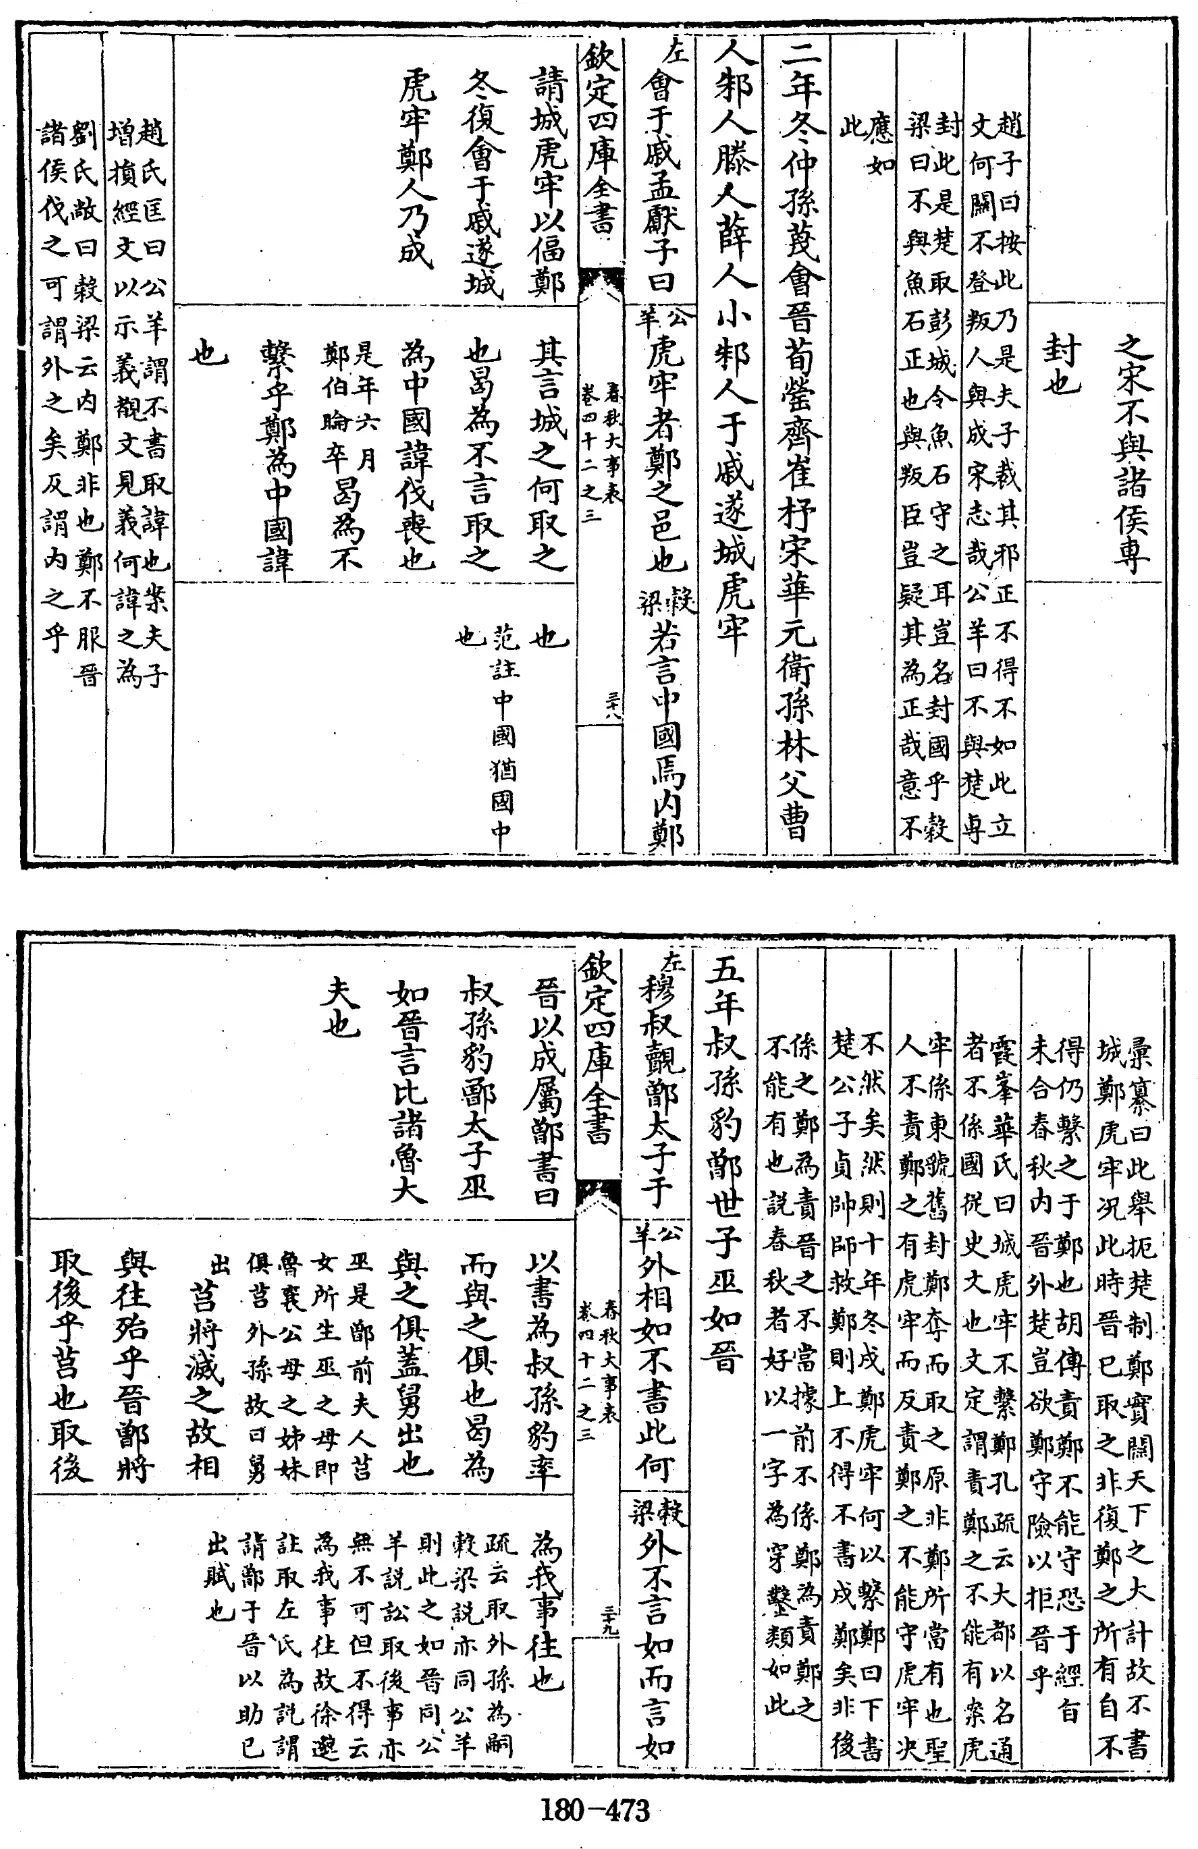 之宋不與諸侯專
封也
趙子曰按此乃是夫子裁其邪正不得不如此立
文何關不登叛人與成宋志哉公羊曰不與楚専
封此是楚取彭城令魚石守之耳豈名封國乎榖
梁曰不與魚石正也與叛臣豈疑其為正哉意不
應如
此
二年冬仲孫蔑會晉荀罃齊崔杼宋華元衛孫林父曹
人邾人滕人薛人小邾人于戚遂城虎牢
左會于戚孟獻子曰
請城虎牢以偪鄭
冬復會于戚遂城
虎牢鄭人乃成
公羊虎牢者鄭之邑也
其言城之何取之
也曷為不言取之
為中國諱伐喪也
是年六月
鄭伯睔卒曷為不
繫乎鄭為中國諱
也
榖梁若言中國焉内鄭
也
范註中國猶國中
也
欽定四庫全書
春秋大事表
卷四十二之三
三十八
趙氏匡曰公羊謂不書取諱也案夫子
增損經文以示義觀文見義何諱之為
劉氏敞曰榖梁云内鄭非也鄭不服晉
諸侯伐之可謂外之矣反謂内之乎
彚纂曰此舉扼楚制鄭實關天下之大計故不書
城鄭虎牢况此時晉已取之非復鄭之所有自不
得仍繫之于鄭也胡傳責鄭不能守恐于經㫖
未合春秋内晉外楚豈欲鄭守險以拒晉乎
霞峯華氏曰城虎牢不繫鄭孔疏云大都以名通
者不係國從史文也文定謂責鄭之不能有案虎
牢係東虢舊封鄭奪而取之原非鄭所當有也聖
人不責鄭之有虎牢而反責鄭之不能守虎牢决
不然矣然則十年冬戍鄭虎牢何以繫鄭曰下書
楚公子貞帥師救鄭則上不得不書戍鄭矣非後
係之鄭為責晉之不當據前不係鄭為責鄭之
不能有也説春秋者好以一字為穿鑿類如此
五年叔孫豹鄫世子巫如晉
左穆叔覿鄫太子于
晉以成屬鄫書曰
叔孫豹鄫太子巫
如晉言比諸魯大
夫也
公羊外相如不書此何
以書為叔孫豹率
而與之俱也曷為
與之俱蓋舅出也
巫是鄫前夫人莒
女所生巫之母即
魯襄公母之姊妹
俱莒外孫故曰舅
出
莒將滅之故相
與往殆乎晉鄫將
取後乎莒也取後
榖梁外不言如而言如
為我事往也
疏云取外孫為嗣
榖梁説亦同公羊
則此之如晉同公
羊説訟取後事亦
無不可但不得云
為我事往故徐邈
註取左氏為説謂
請鄫于晉以助已
出賦也
欽定四庫全書
春秋大事表
卷四十二之三
三十九
180-473